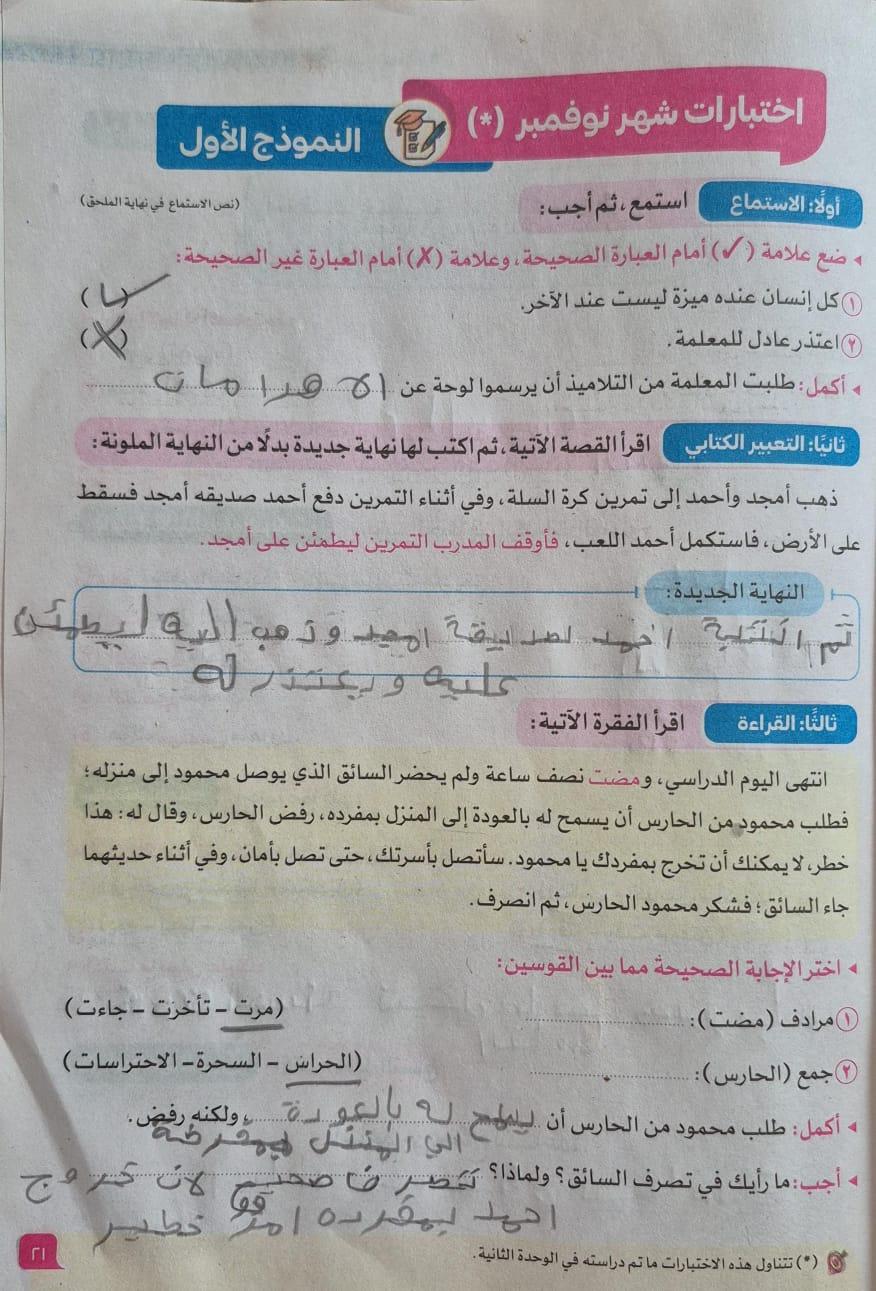 اختبارات شهر نوفمبر (*)
النموذج الأول
أولًا: الاستماع استمع، ثم أجب: (نص الاستماع في نهاية الملحق)
ضع علامة (✓) أمام العبارة الصحيحة، وعلامة (✗) أمام العبارة غير الصحيحة:
١ كل إنسان عنده ميزة ليست عند الآخر. (✓)
٢ اعتذر عادل للمعلمة. (✗)
أكمل: طلبت المعلمة من التلاميذ أن يرسموا لوحة عن الاهرامات
ثانيًا: التعبير الكتابي اقرأ القصة الآتية، ثم اكتب لها نهاية جديدة بدلًا من النهاية الملونة:
ذهب أمجد وأحمد إلى تمرين كرة السلة، وفي أثناء التمرين دفع أحمد صديقه أمجد فسقط
على الأرض، فاستكمل أحمد اللعب، فأوقف المدرب التمرين ليطمئن على أمجد.
النهاية الجديدة:
ثم احمد لصديقة امجد وذهب اليه ليطمئن
عليه ويعتذر له
ثالثًا: القراءة اقرأ الفقرة الآتية:
انتهى اليوم الدراسي، ومضت نصف ساعة ولم يحضر السائق الذي يوصل محمود إلى منزله؛
فطلب محمود من الحارس أن يسمح له بالعودة إلى المنزل بمفرده، رفض الحارس، وقال له: هذا
خطر، لا يمكنك أن تخرج بمفردك يا محمود. سأتصل بأسرتك، حتى تصل بأمان، وفي أثناء حديثهما
جاء السائق؛ فشكر محمود الحارس، ثم انصرف.
اختر الإجابة الصحيحة مما بين القوسين:
١ مرادف (مضت): (مرت – تأخرت – جاءت)
٢ جمع (الحارس): (الحراس – السحرة – الاحتراسات)
أكمل: طلب محمود من الحارس أن له بالعودة، ولكنه رفض.
الي
أجب: ما رأيك في تصرف السائق؟ ولماذا؟ لان خروج
بمفرده امر خطير
(*) تتناول هذه الاختبارات ما تم دراسته في الوحدة الثانية.
٢١